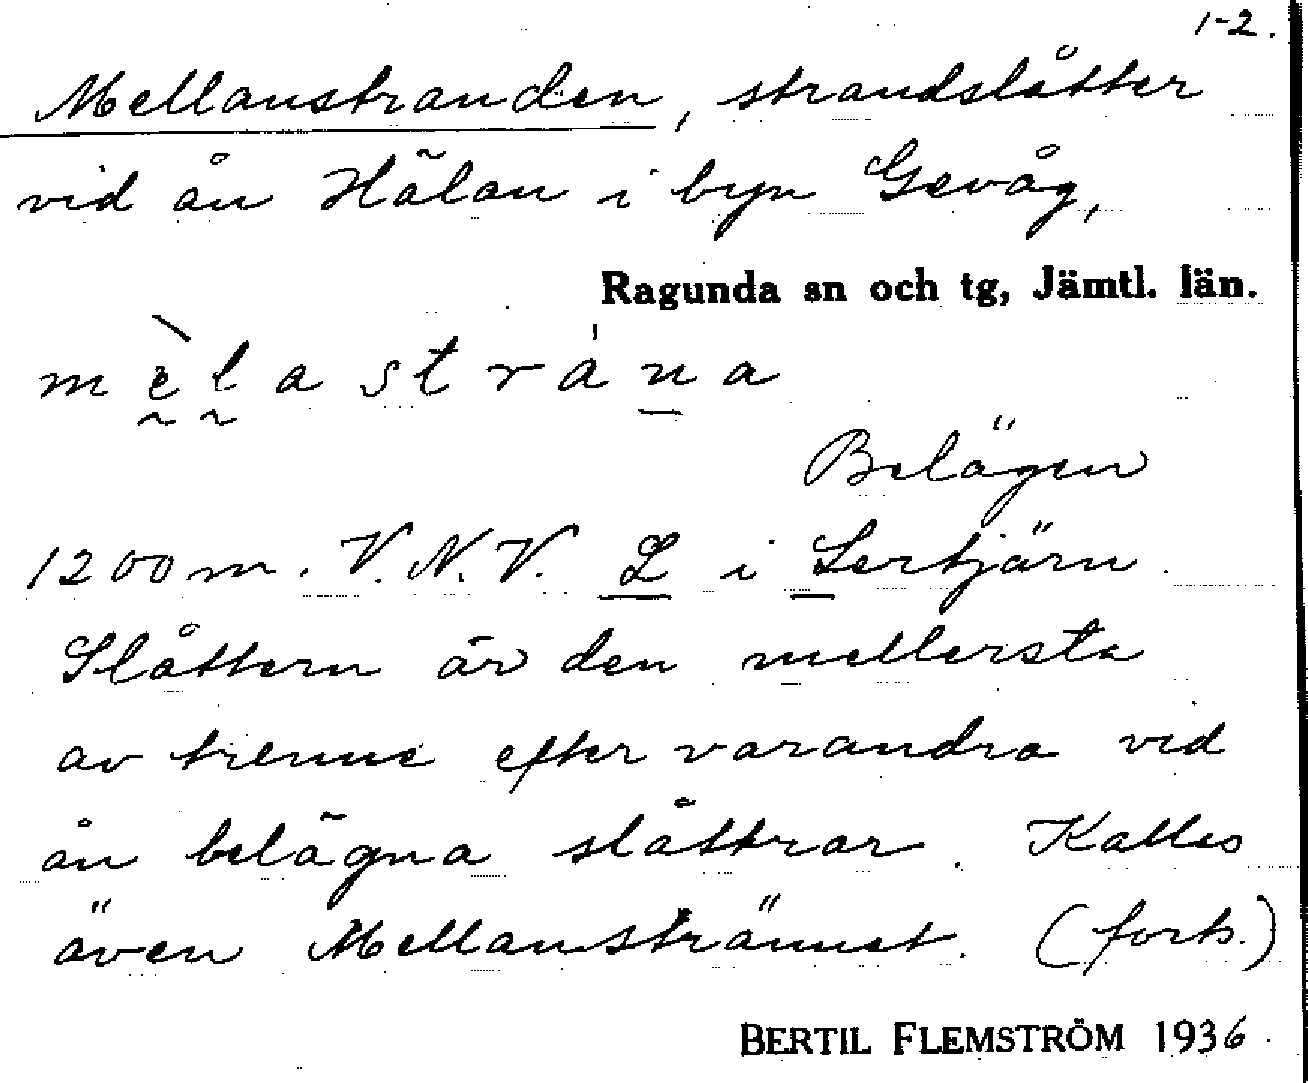 1-2.
Mellanstranden, strandslåtter
vid ån Hälan i byn Gevåg,
Ragunda sn och tg, Jämtl. län.
mèlastrána
Belägen
1200 m. V.N.V. L i Lertjärn.
Slåttern är den mellersta
av trenne efter varandra vid
ån belägna slåttrar. Kallas
även Mellanstrännet. (forts.)
BERTIL FLEMSTRÖM 1936.